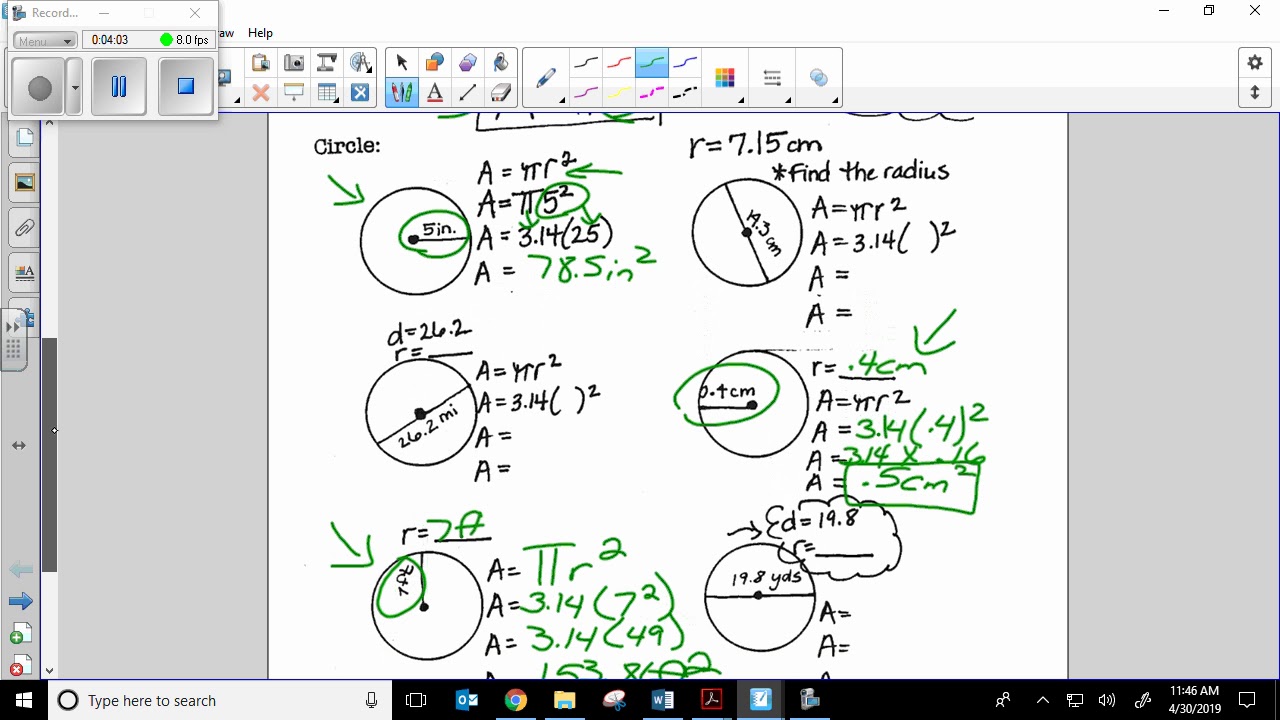 Record...
Menu
0:04:03
8.0 fps
aw Help
Circle:
A = πr²
A = π5²
A = 3.14(25)
A = 78.5in²
5in.
r = 7.15cm
*Find the radius
14.3 cm
A = πr²
A = 3.14( )²
A =
A =
d = 26.2
r = ____
26.2 mi
A = πr²
A = 3.14( )²
A =
A =
r = .4cm
0.4cm
A = πr²
A = 3.14(.4)²
A = 3.14 x .16
A = .5cm²
r = 7ft
7ft
A = πr²
A = 3.14(7²)
A = 3.14(49)
153.86ft2
d = 19.8
r = ____
19.8 yds
A =
A =
Type here to search
11:46 AM
4/30/2019